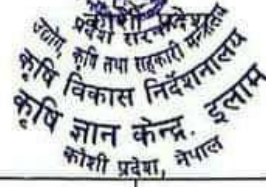 कोशी प्रदेश
प्रदेश सरकार
उद्योग, कृषि तथा सहकारी मन्त्रालय
कृषि विकास निर्देशनालय
कृषि ज्ञान केन्द्र, इलाम
कोशी प्रदेश, नेपाल